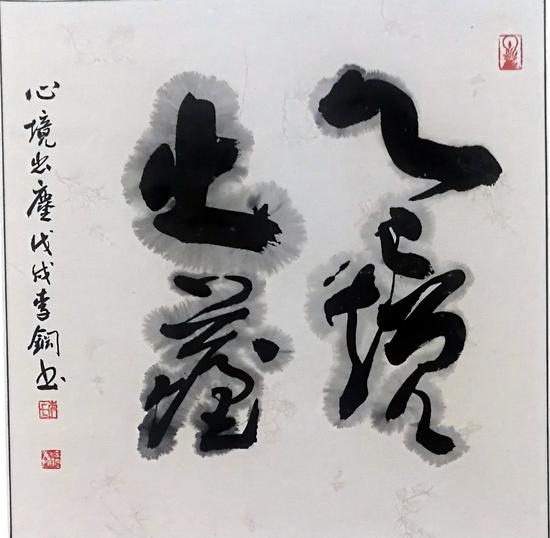 心境
出塵
心境出塵戊戌李鋼书